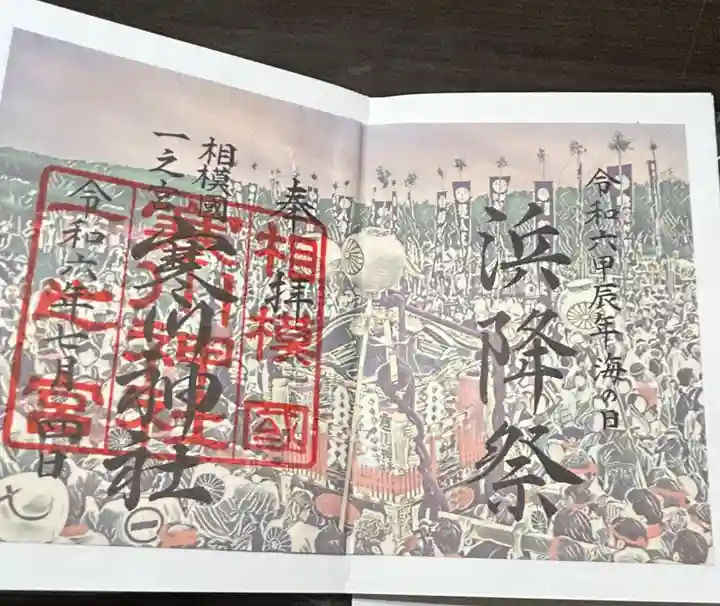 令和六甲辰年海の日
浜降祭
奉拝
相模國
一之宮
寒川神社
令和六年七月四日
相模國
寒川神社
一之宮
七
一